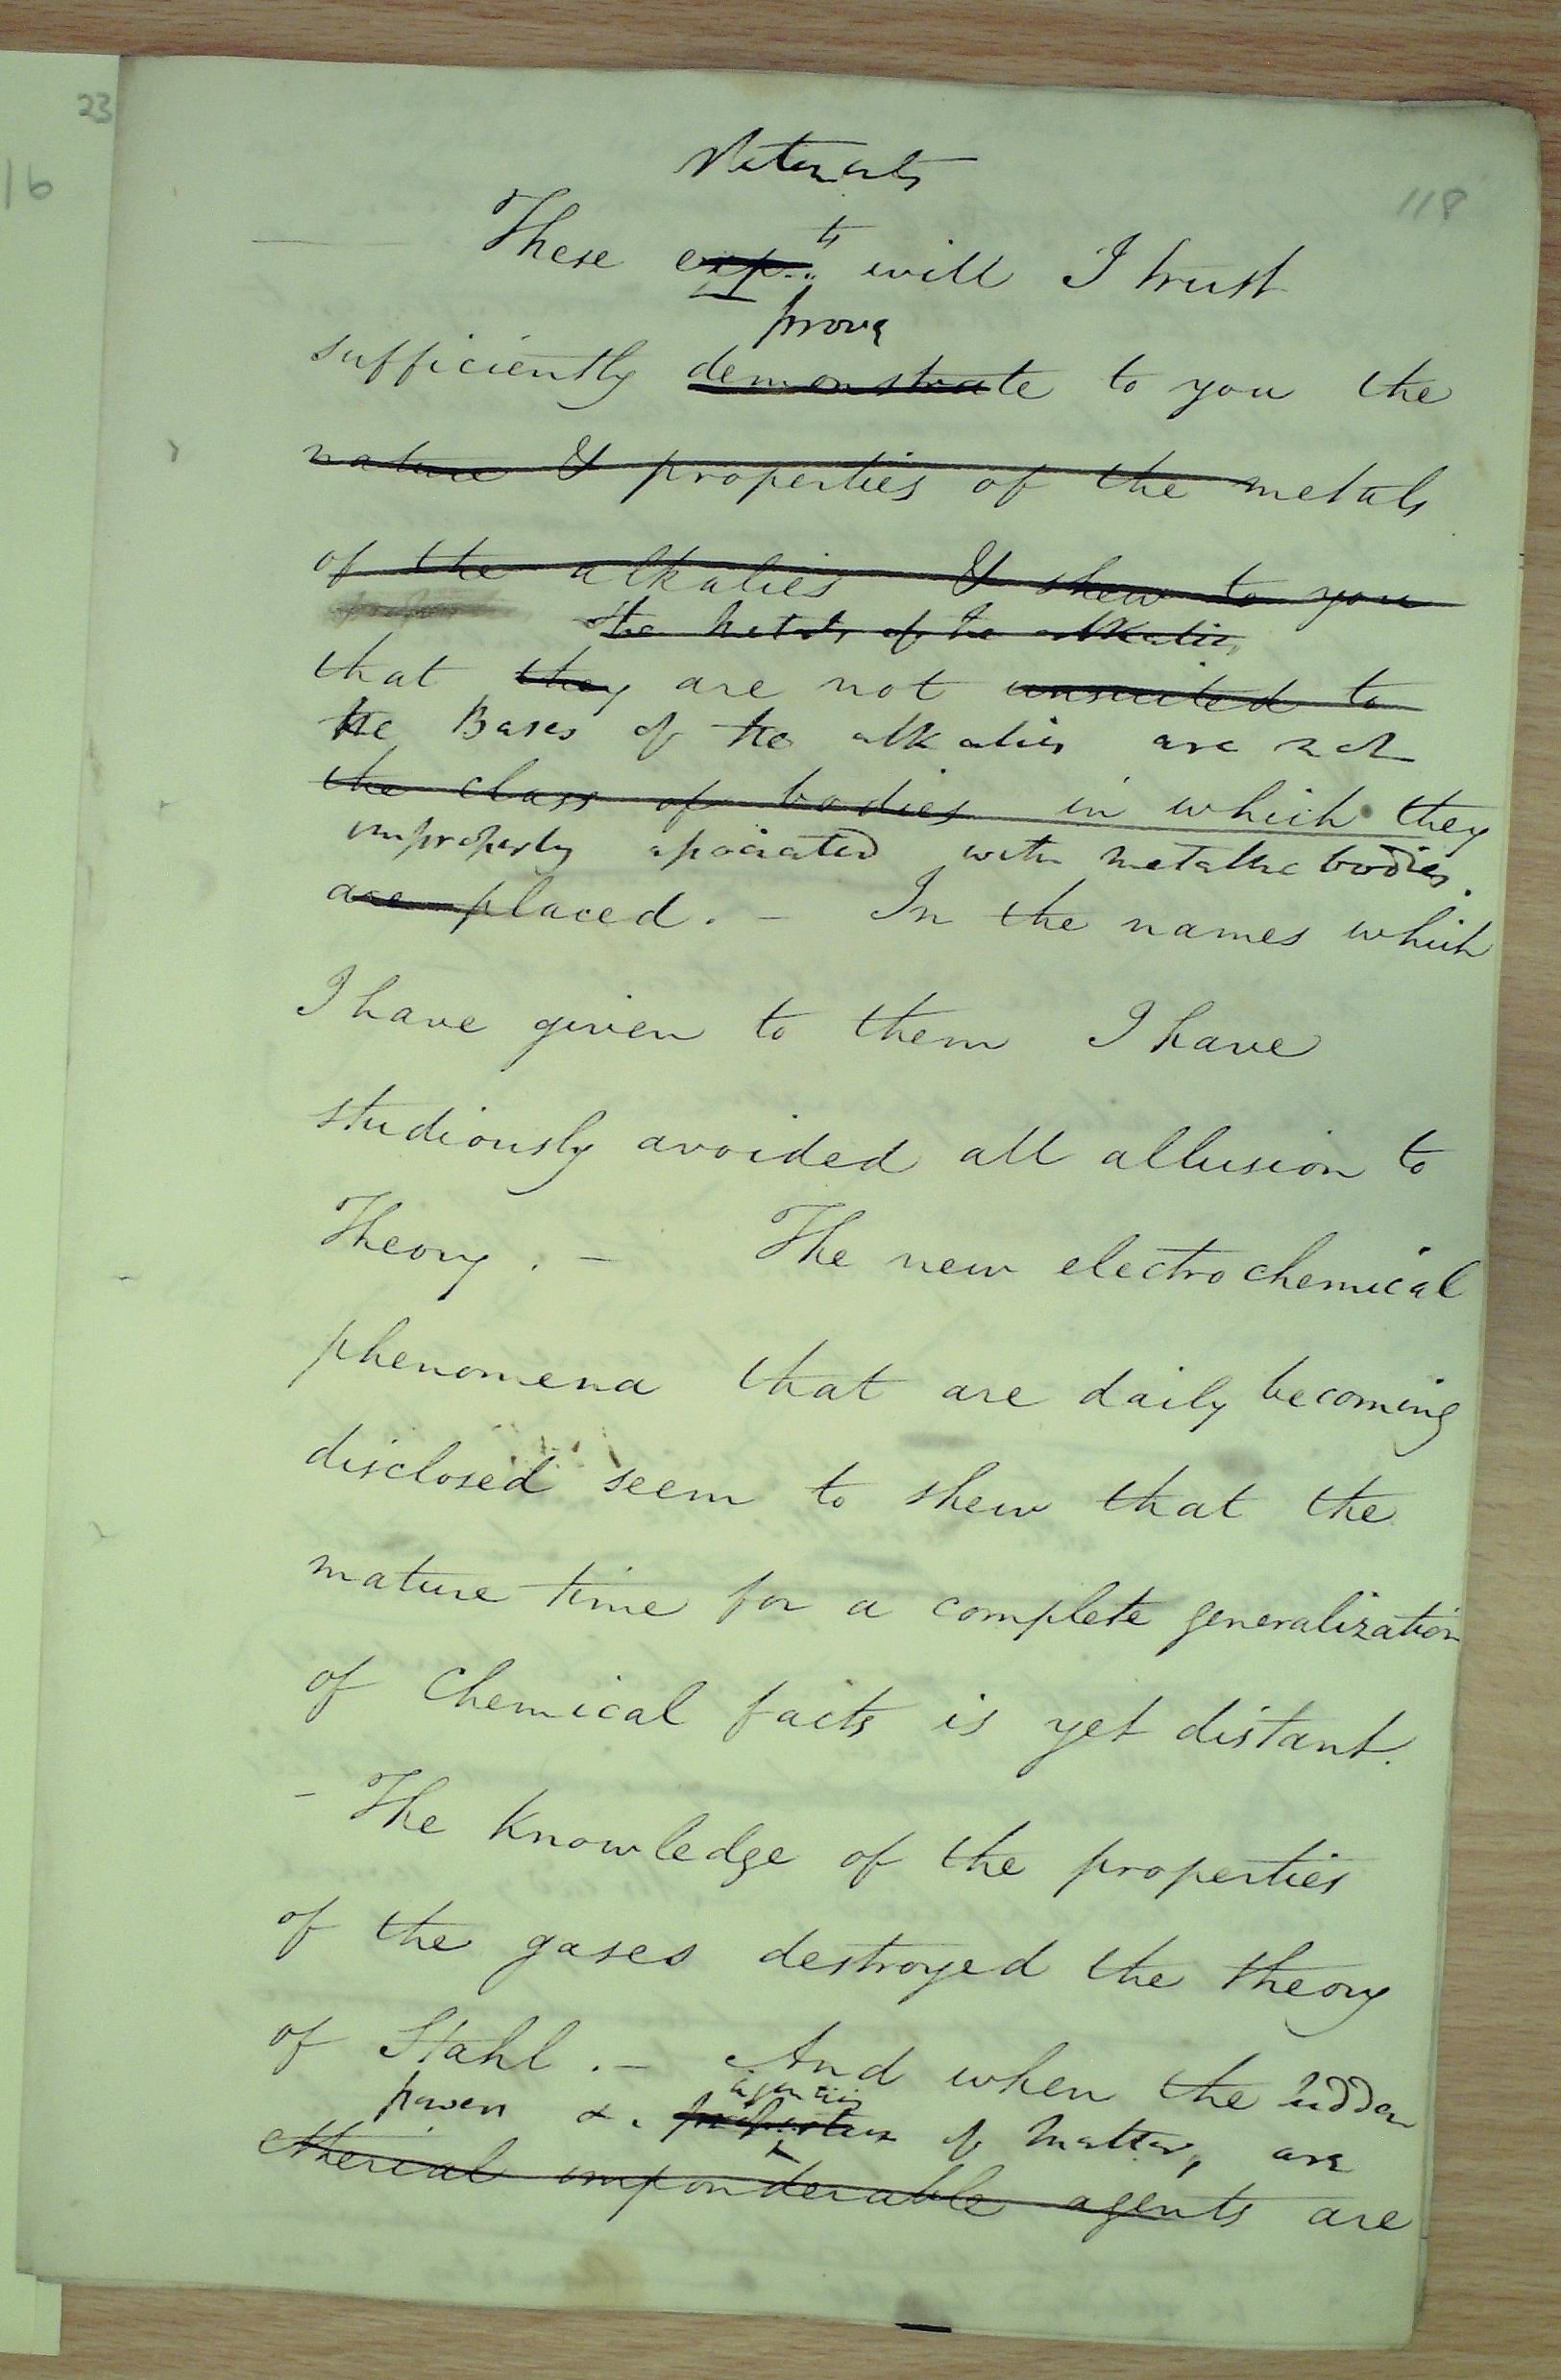 23
16
118
These exp.ts will I trust
prove
sufficiently demonstrate to you the
nature & properties of the metals
of the alkalies & shew to you
the metals of the alkalies
that they are not unsuited to
the Bases of the alkalies are not
the class of bodies in which they
improperly associated with metallic bodies.
are placed. - In the names which
I have given to them I have
studiously avoided all allusion to
Theory. - The new electrochemical
phenomena that are daily becoming
disclosed seem to shew that the
mature time for a complete generalization
of Chemical facts is yet distant.
- The knowledge of the properties
of the gases destroyed the theory
of Stahl. - And when the hidden
agencies
powers & properties of matter, are
etherial imponderable agents are